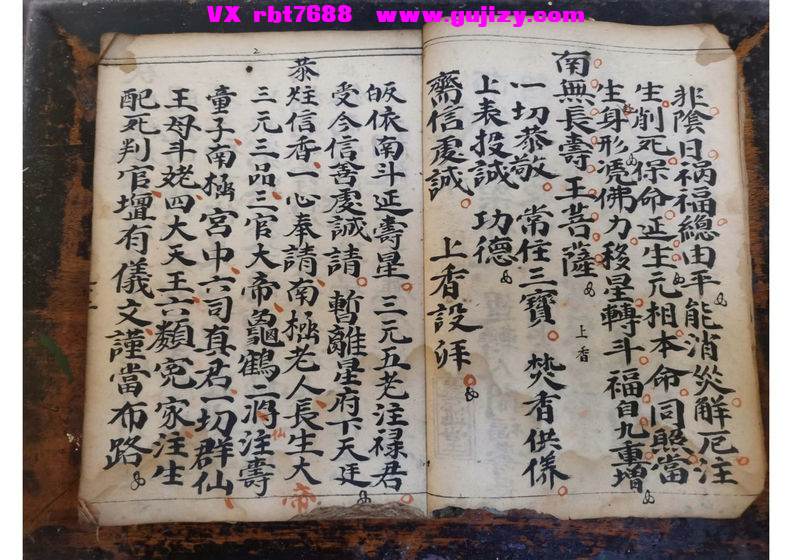 VX rbt7688 www.gujizy.com
非陰日祸福總由平能消災解厄注
生削死保命延生元相本命同照當
生身形凴佛力移星轉斗福自九重增
南無長壽王菩薩 上香
一切恭敬 常住三寶 焚香供養
上表投誠 功德
齋信虔誠 上香設拜
皈依南斗延壽星 三元五老注禄君
受今信善虔誠請 暫離星府下天廷
恭炷信香一心奉請南極老人長生大帝
三元三品三官大帝龜鶴二将注壽
仙
童子南極宮中六司真君一切群仙
王母斗姥四大天王六類冤家注生
配死判官壇有儀文謹當布路